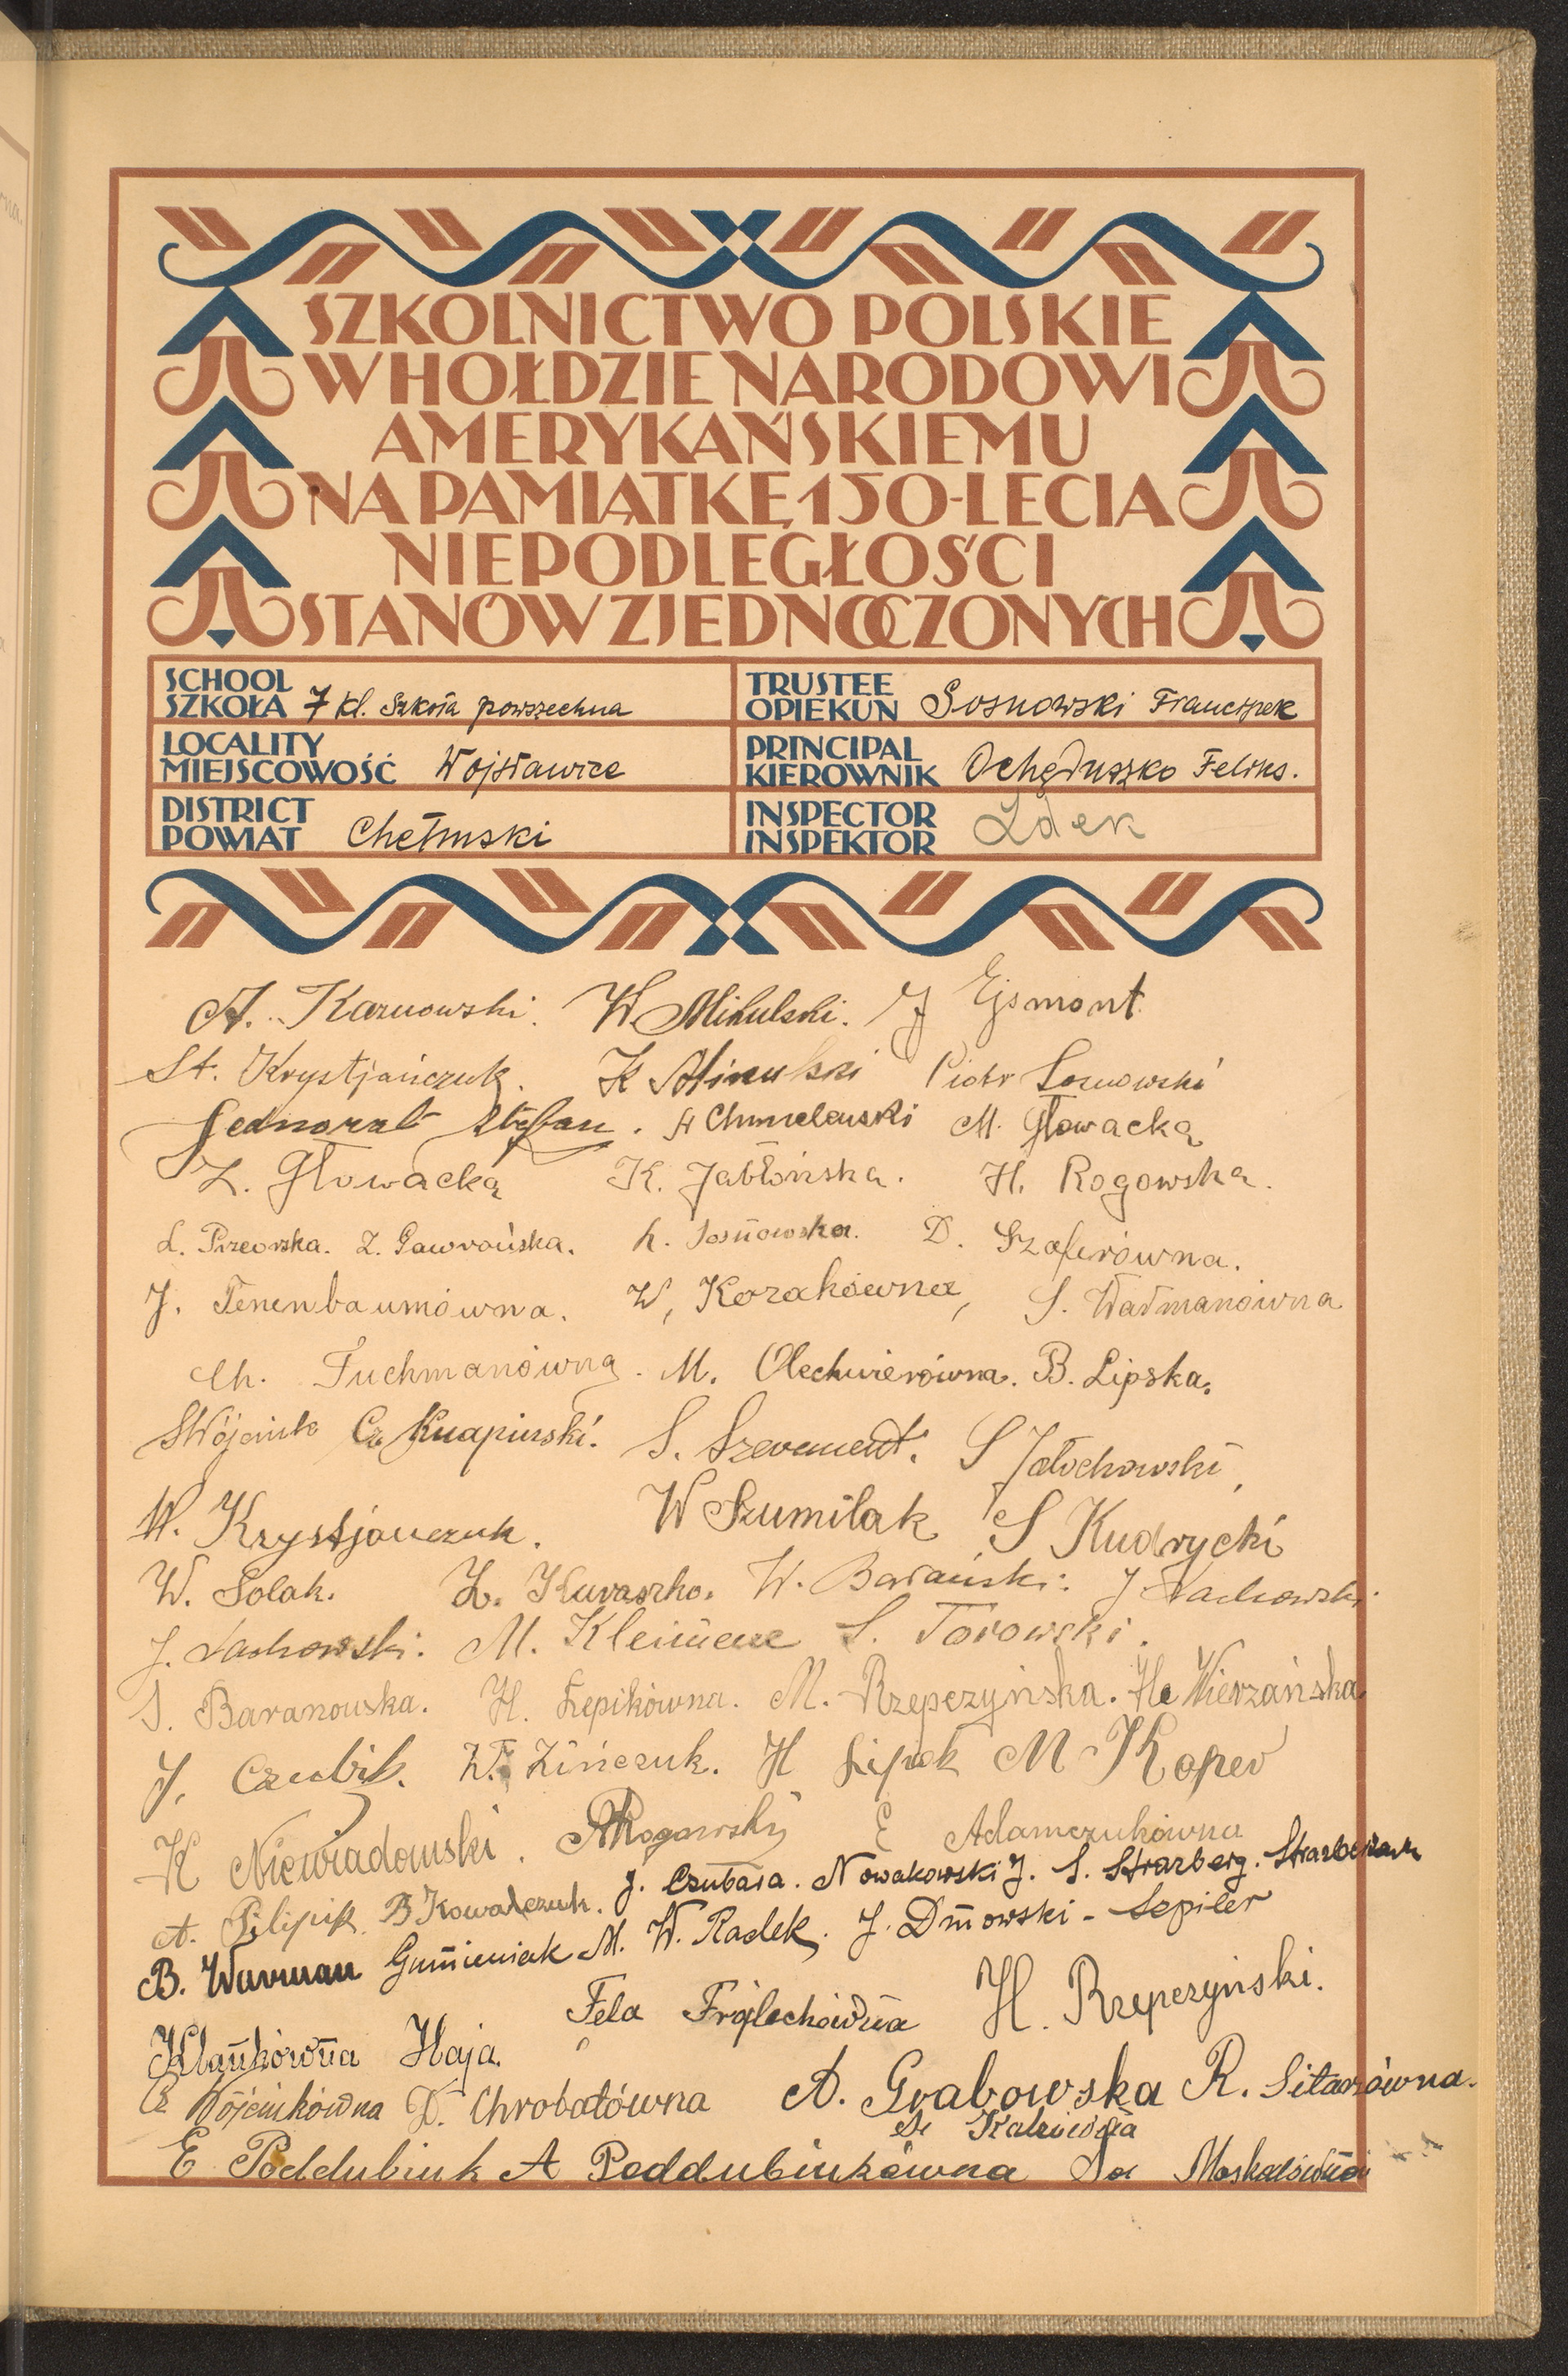 SZKOLNICTWO POLSKIE
W HOŁDZIE NARODOWI
AMERYKAŃSKIEMU
NA PAMIĄTKĘ 150-LECIA
NIEPODLEGŁOŚCI
STANÓW ZJEDNOCZONYCH
SCHOOL
SZKOŁA 7 kl. Szkoła powszechna
TRUSTEE
OPIEKUN Sosnowski Franciszek
LOCALITY
MIEJSCOWOŚĆ Wojsławice
PRINCIPAL
KIEROWNIK Ochęduszko Feliks.
DISTRICT
POWIAT Chełmski
INSPECTOR
INSPEKTOR
A. Karnowski. W. Mikulski. J Ejsmont.
St. Krystjańczuk. K Mikulski Piotr Sosnowski
Stefan. Chmielewski M. Głowacka
Z. Głowacka K. Jabłońska. H. Rogowska.
L. Przeorska. Z. Gawrońska. K. Sosnowska. D. Szaferówna.
J. Tenenbaumówna. W. Kozakówna, S. Wałmanówna
Ch. Fuchmanówna. M. Olechwierówna. B. Lipska.
S Wójcik Cz Knapiński. S. S Jałochowski
W. Krystjańczuk. W Szumilak S Kudrycki
W. Solak. Z. Kuraszko. W. Barański. J. Lachowski.
J. Lachowski. M. S. Torowski.
S. Baranowska. H. Łepikówna. M. Rzepczyńska. He Wierzańska.
J. Czubik. W. Zińczuk. H Lipak M Koper
K Niewiadomski. A Rogowski E Adamczukówna
A. Pilipik. B Kowalczuk. J. Czubara. Nowakowski J. S. Strazberg.
B. Wurman Gumieniak M. W. Radek. J. Dmowski - Szpiler
Fela Frajlechówna H. Rzepczyński.
Klankówna Haja.
Cz Wójcikówna D. Chrobatówna A. Grabowska R. Sitarzówna.
E Poddubiuk A Poddubiukówna Moskalówna